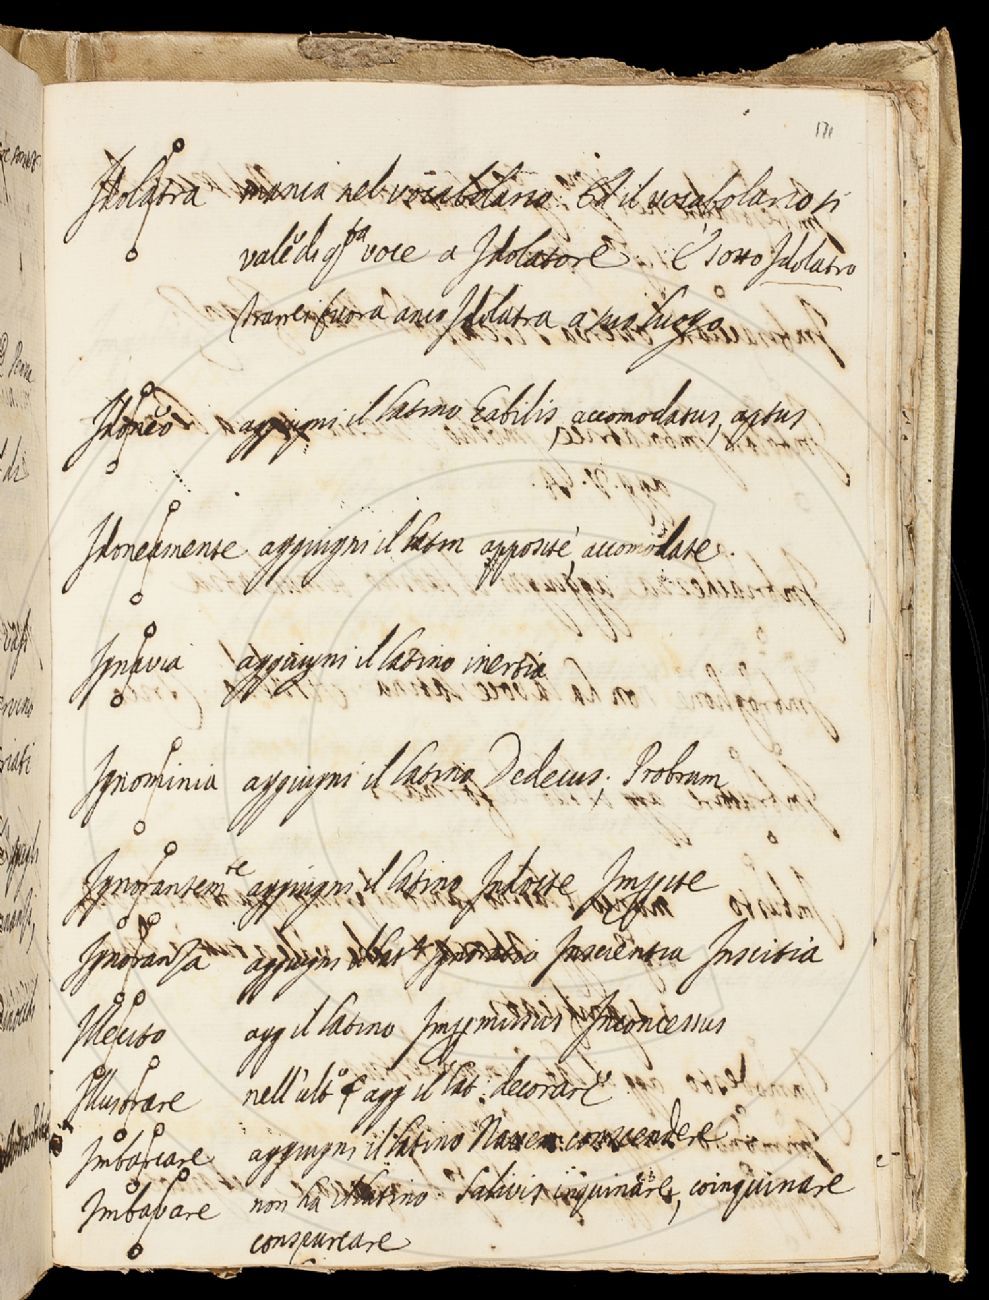 Idolatra manca nel vocabolario. Ed il vocabolario si
vale di q.ta voce a Idolatore È sotto Idolatro
trarrei fuora anco Idolatra a suo luogo
Idoneo aggiugni il latino habilis, accomodatus, aptus
Idoneamente aggiugni il latin apposite, accomodate.
Ignavia aggiugni il latino inertia
Ignominia aggiugni il latino Dedecus, Probrum
Ignorantem.te aggiugni il latino Indocte Inscite
Ignoranza aggiugni il lat. Ignoratio Inscientia Inscitia
Illecito agg il latino Impermissus Inconcessus
Illustrare nell'ult.o § agg il lat: decorare
Imbarcare aggiugni il latino Navem conscendere
Imbavare non ha il latino. Salivis inquinare, coinquinare
conspurcare